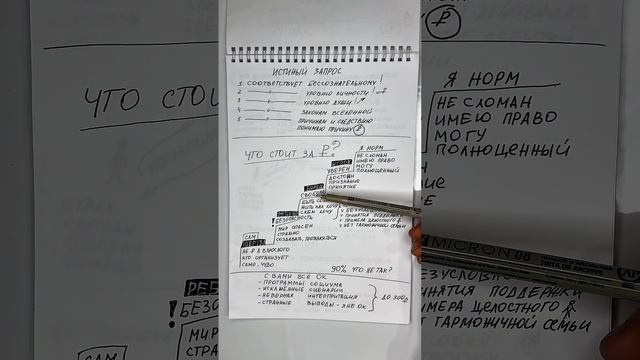 ИСТИННЫЙ ЗАПРОС
1 СООТВЕТСТВУЕТ БЕССОЗНАТЕЛЬНОМУ!
2 —— " —— УРОВНЮ ЛИЧНОСТИ!
3 —— " —— УРОВНЮ ДУШИ!
4 —— " —— ЗАКОНАМ ВСЕЛЕННОЙ
5 —— " —— ПРИЧИНАМ И СЛЕДСТВИЮ
ПОНИМАЮ ПРИЧИНУ ₽
ЧТО СТОИТ ЗА ₽?
Я НОРМ
НЕ СЛОМАН
ИМЕЮ ПРАВО
МОГУ
ПОЛНОЦЕННЫЙ
УВЕРЕН
ДОСТОИН
ПРИЗНАНИЕ
ПРИНЯТИЕ
БЫТЬ
ЖИТЬ КАК ХОЧУ
СКЕМ ХОЧУ
БЕЗОПАСНОСТЬ
МИР ОПАСЕН
СТРАШНО
СОЗДАВАТЬ, ПРОЯВЛЯТЬСЯ
V ПРИНЯТИЯ ПОДДЕРЖКИ
V ПРИМЕРА ЦЕЛОСТНОГО
V НЕТ ГАРМОНИЧНОЙ СЕМЬИ
САМ
НЕ Я ВЗРОСЛОГО
КТО ОРГАНИЗУЕТ
САМО, ЧУВО
90% ЧТО НЕ ТАК?
С ВАМИ ВСЕ ОК
- ПРОГРАММЫ СОЦИУМА
- ИСКАЖЕННЫЕ СЦЕНАРИИ
- НЕВЕРНАЯ ИНТЕРПРИТАЦИЯ
- СТРАННЫЕ ВЫВОДЫ - Я НЕ ОК
ДО 300
₽
ЧТО СТОИ
Я НОРМ
НЕ СЛОМАН
ИМЕЮ ПРАВО
МОГУ
ПОЛНОЦЕННЫЙ
MICRON 08
РЕБ
! БЕЗО
МИР
СТРА
САМ
БЕЗУСЛОВНО
РИНЯТИЯ ПОДДЕРЖКИ
ИМЕРА ЦЕЛОСТНОГО
Т ГАРМОНИЧНОЙ СЕМЬИ